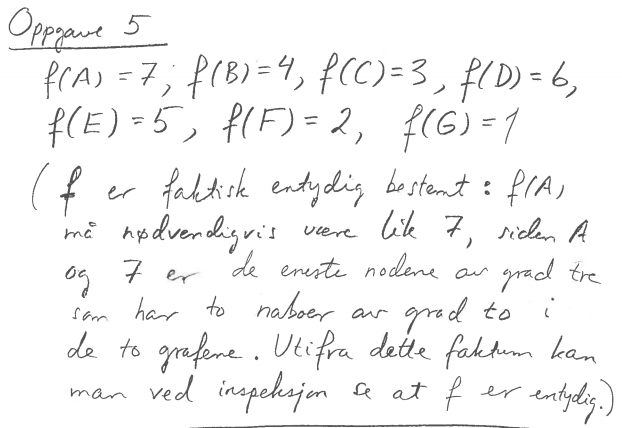 Oppgave 5
f(A) = 7, f(B) = 4, f(C) = 3, f(D) = 6,
f(E) = 5, f(F) = 2, f(G) = 1
(f er faktisk entydig bestemt : f(A)
må nødvendigvis være lik 7, siden A
og 7 er de eneste nodene av grad tre
som har to naboer av grad to i
de to grafene. Utifra dette faktum kan
man ved inspeksjon se at f er entydig.)